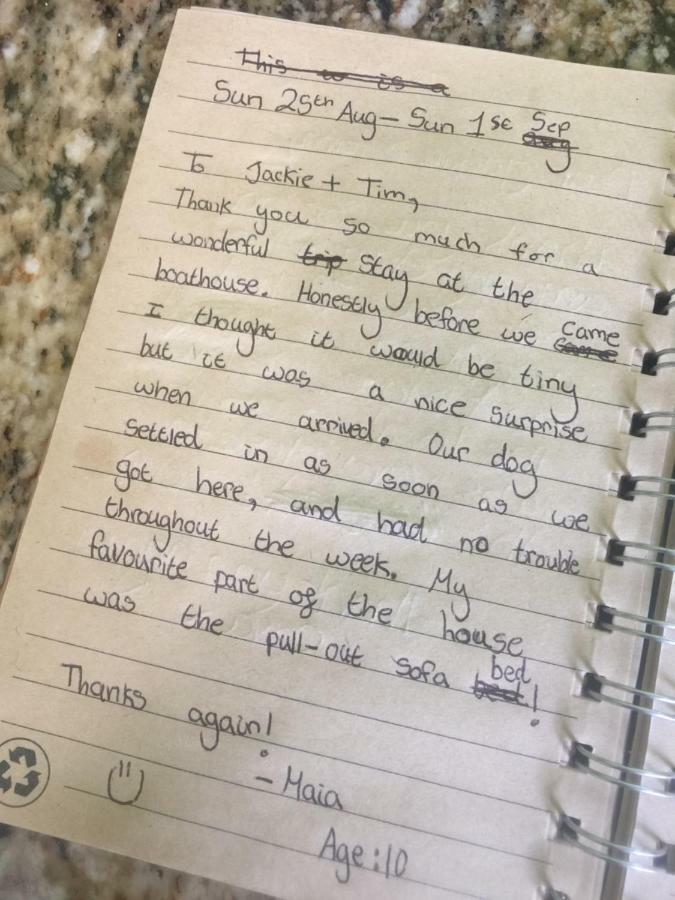 This is a
Sun 25th Aug – Sun 1st Sep
To Jackie + Tim,
Thank you so much for a
wonderful trip stay at the
boathouse. Honestly before we came
I thought it would be tiny
but it was a nice surprise
when we arrived. Our dog
settled in as soon as we
got here, and had no trouble
throughout the week. My
favourite part of the house
was the pull-out sofa bed!
Thanks again!
- Maia
Age:10